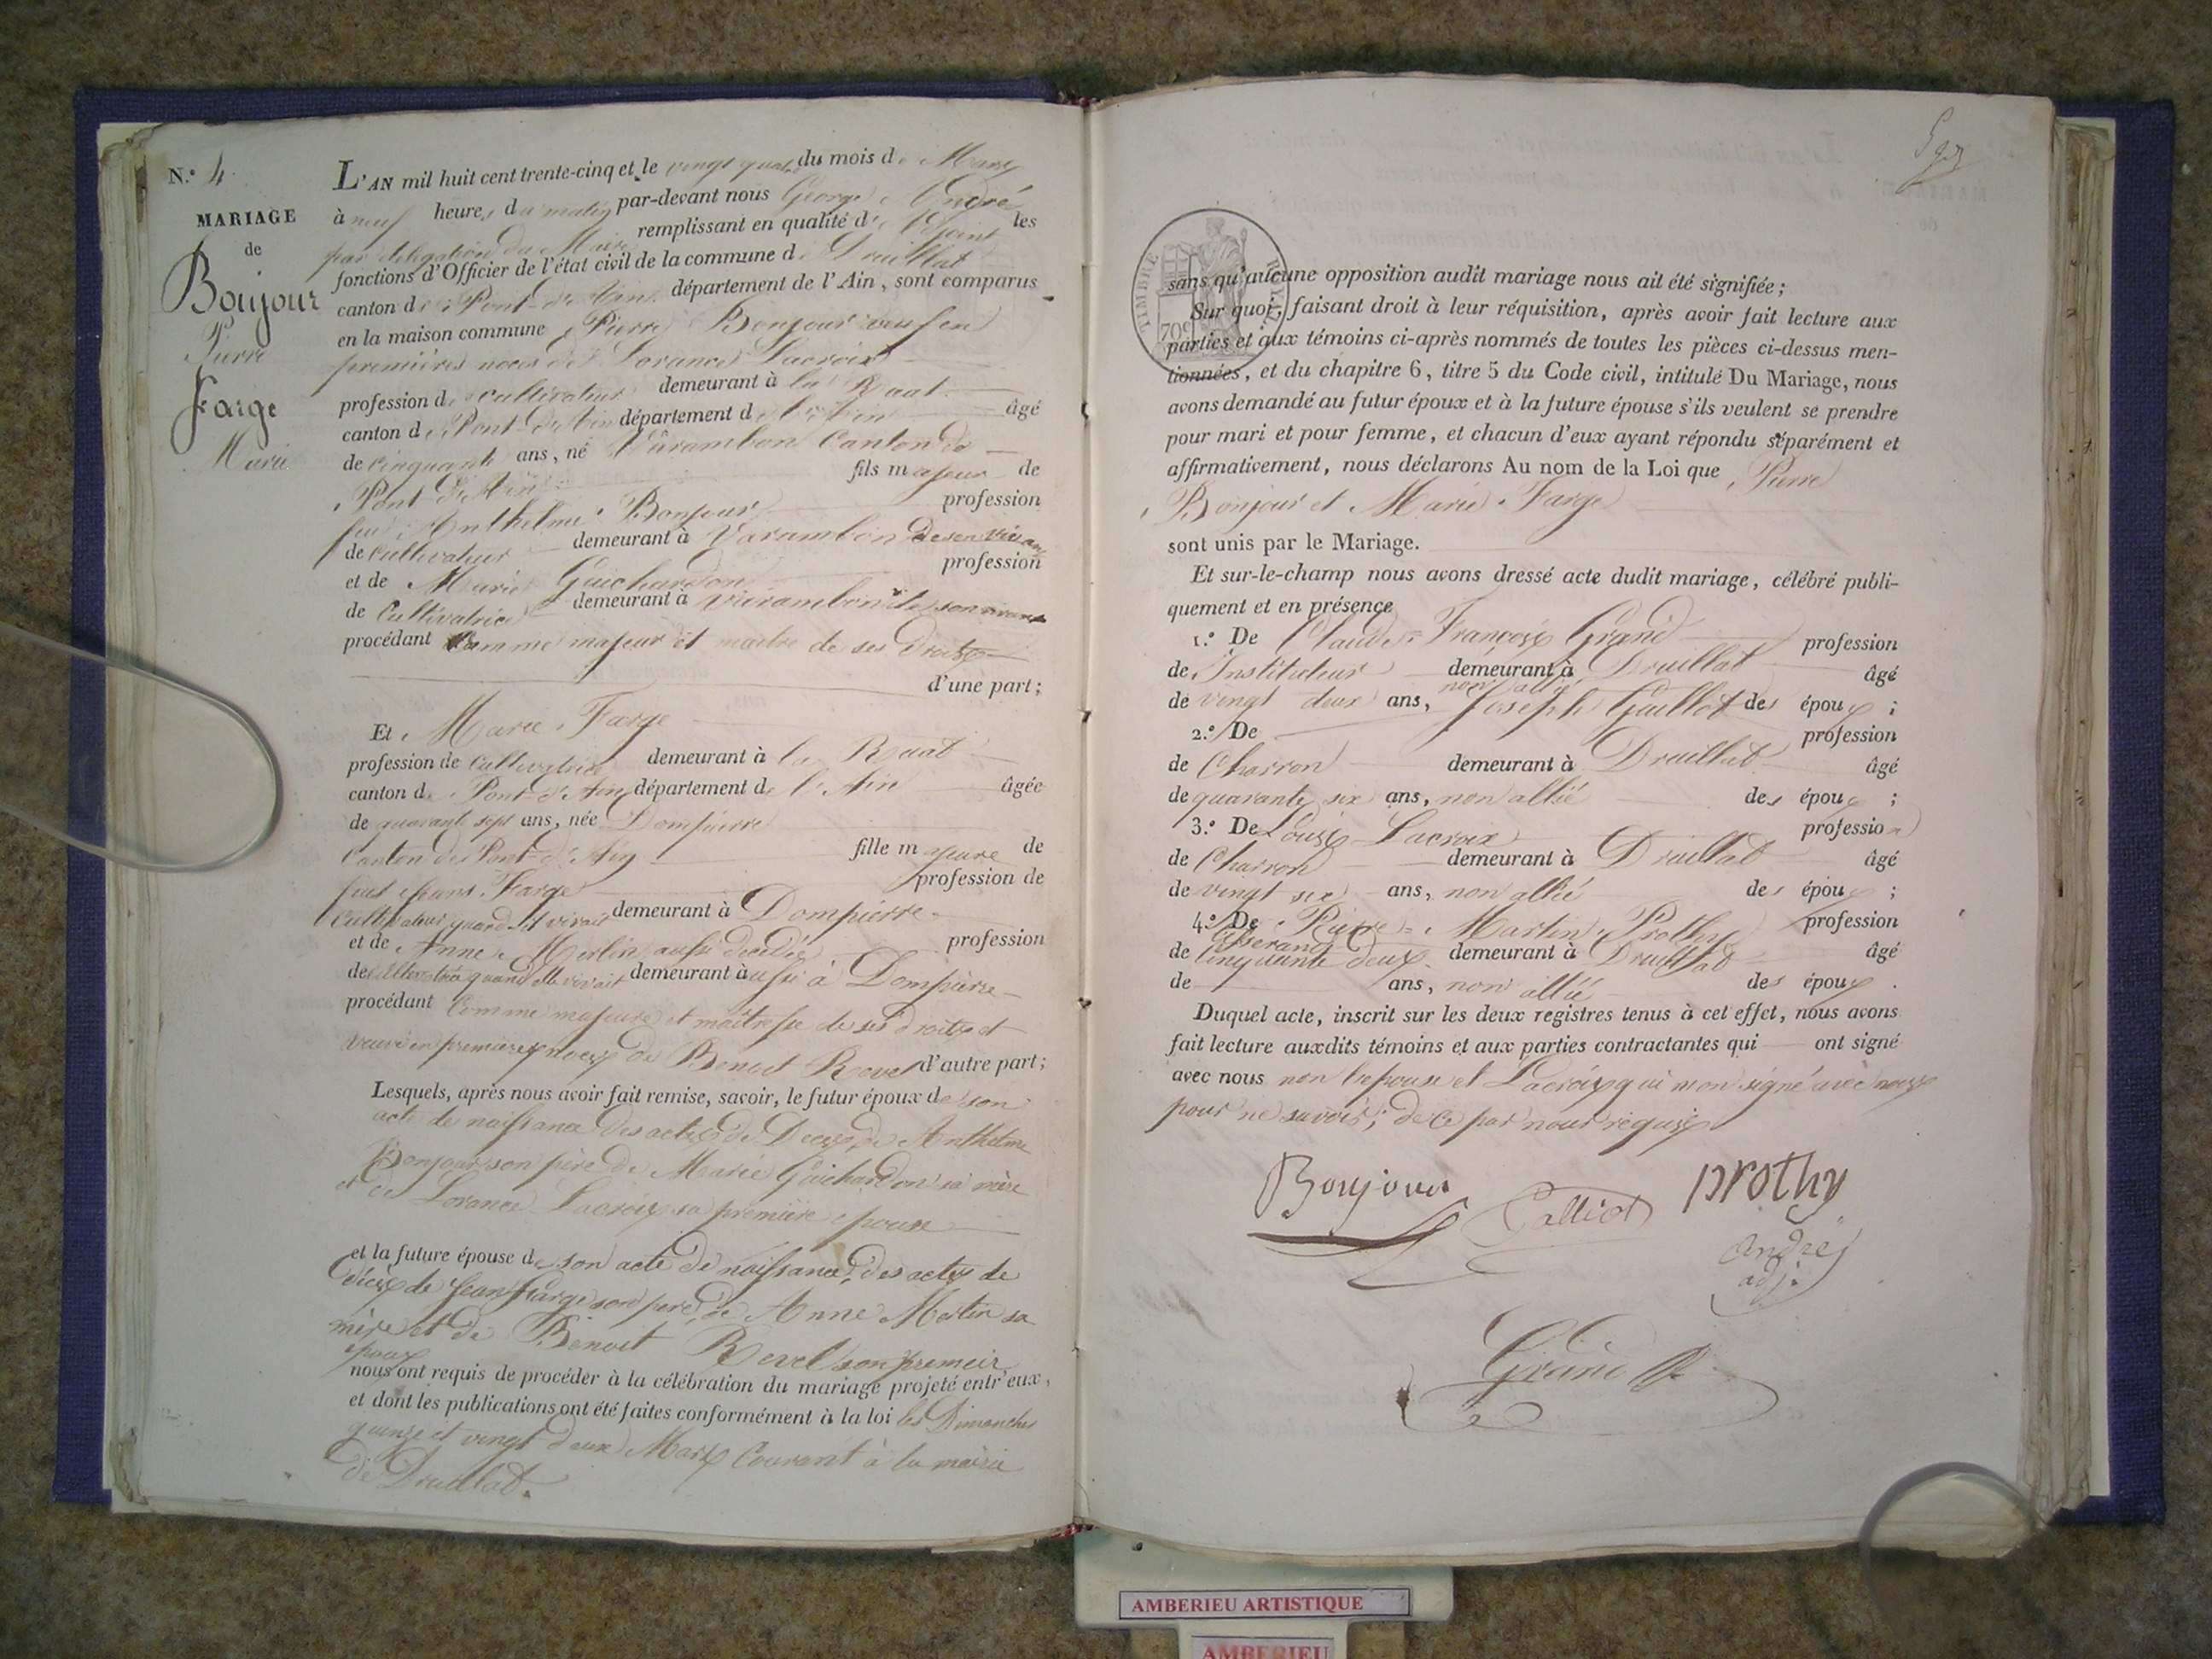 N.º 4
MARIAGE
de
Bonjour
Pierre
Farge
Marie
L'AN mil huit cent trente-cinq et le vingt quatre du mois de Mars
à neuf heures du matin par-devant nous George André
par délégation du Maire remplissant en qualité d'Adjoint les
fonctions d'Officier de l'état civil de la commune de Druillat
canton de Pont-d'Ain département de l'Ain, sont comparus
en la maison commune Pierre Bonjour veuf en
premières noces de Lorance Lacroix
profession de cultivateur demeurant à la Ruat
canton de Pont-d'Ain département de l'Ain âgé
de cinquante ans, né Varambon Canton de
Pont-d'Ain fils majeur de
feu Anthelme Bonjour profession
de cultivateur demeurant à Varambon de son vivant
et de Marie Guichardon profession
de Cultivatrice demeurant à Varambon de son vivant
procédant comme majeur et maitre de ses droits
d'une part;
Et Marie Farge
profession de Cultivatrice demeurant à la Ruat
canton de Pont-d'Ain département de l'Ain âgée
de quarante sept ans, née Dompierre
Canton de Pont-d'Ain fille majeure de
feu Jean Farge profession de
Cultivateur quand il vivait demeurant à Dompierre
et de Anne Merlin aussi décédée profession
de cultivatrice quand elle vivait demeurant aussi à Dompierre
procédant Comme majeure et maitresse de ses droits et
veuve en premières noces de Benoit Revel d'autre part;
Lesquels, après nous avoir fait remise, savoir, le futur époux de son
acte de naissance des actes de Décès de Anthelme
Bonjour son père de Marie Guichardon sa mère
et de Lorance Lacroix sa première epouse
et la future épouse de son acte de naissance, des actes de
décès de Jean Farge son père, de Anne Merlin sa
mère et de Benoit Revel son premeir
époux
nous ont requis de procéder à la célébration du mariage projeté entr'eux,
et dont les publications ont été faites conformément à la loi les Dimanches
quinze et vingt deux Mars Courant à la mairie
de Druillat.
TIMBRE ROYAL
70c
sans qu'aucune opposition audit mariage nous ait été signifiée;
Sur quoi, faisant droit à leur réquisition, après avoir fait lecture aux
parties et aux témoins ci-après nommés de toutes les pièces ci-dessus men-
tionnées, et du chapitre 6, titre 5 du Code civil, intitulé Du Mariage, nous
avons demandé au futur époux et à la future épouse s'ils veulent se prendre
pour mari et pour femme, et chacun d'eux ayant répondu séparément et
affirmativement, nous déclarons Au nom de la Loi que Pierre
Bonjour et Marie Farge
sont unis par le Mariage.
Et sur-le-champ nous avons dressé acte dudit mariage, célébré publi-
quement et en présence
1.º De Claude-François Grand profession
de Instituteur demeurant à Druillat âgé
de vingt deux ans, non allié des époux;
2.º De Joseph Guillot profession
de Charron demeurant à Druillat âgé
de quarante six ans, non allié des époux;
3.º De Louis Lacroix profession
de Charron demeurant à Druillat âgé
de vingt six ans, non allié des époux;
4.º De Pierre-Martin Prothy profession
de Tisserand demeurant à Druillat âgé
de cinquante deux ans, non allié des époux.
Duquel acte, inscrit sur les deux registres tenus à cet effet, nous avons
fait lecture auxdits témoins et aux parties contractantes qui ont signé
avec nous non l'epouse et Lacroix qui n'ont signé avec nous
pour ne savoir; de ce par nous requis
Bonjour
Galliot
prothy
André
adj.
Grand
AMBERIEU ARTISTIQUE
AMBERIEU